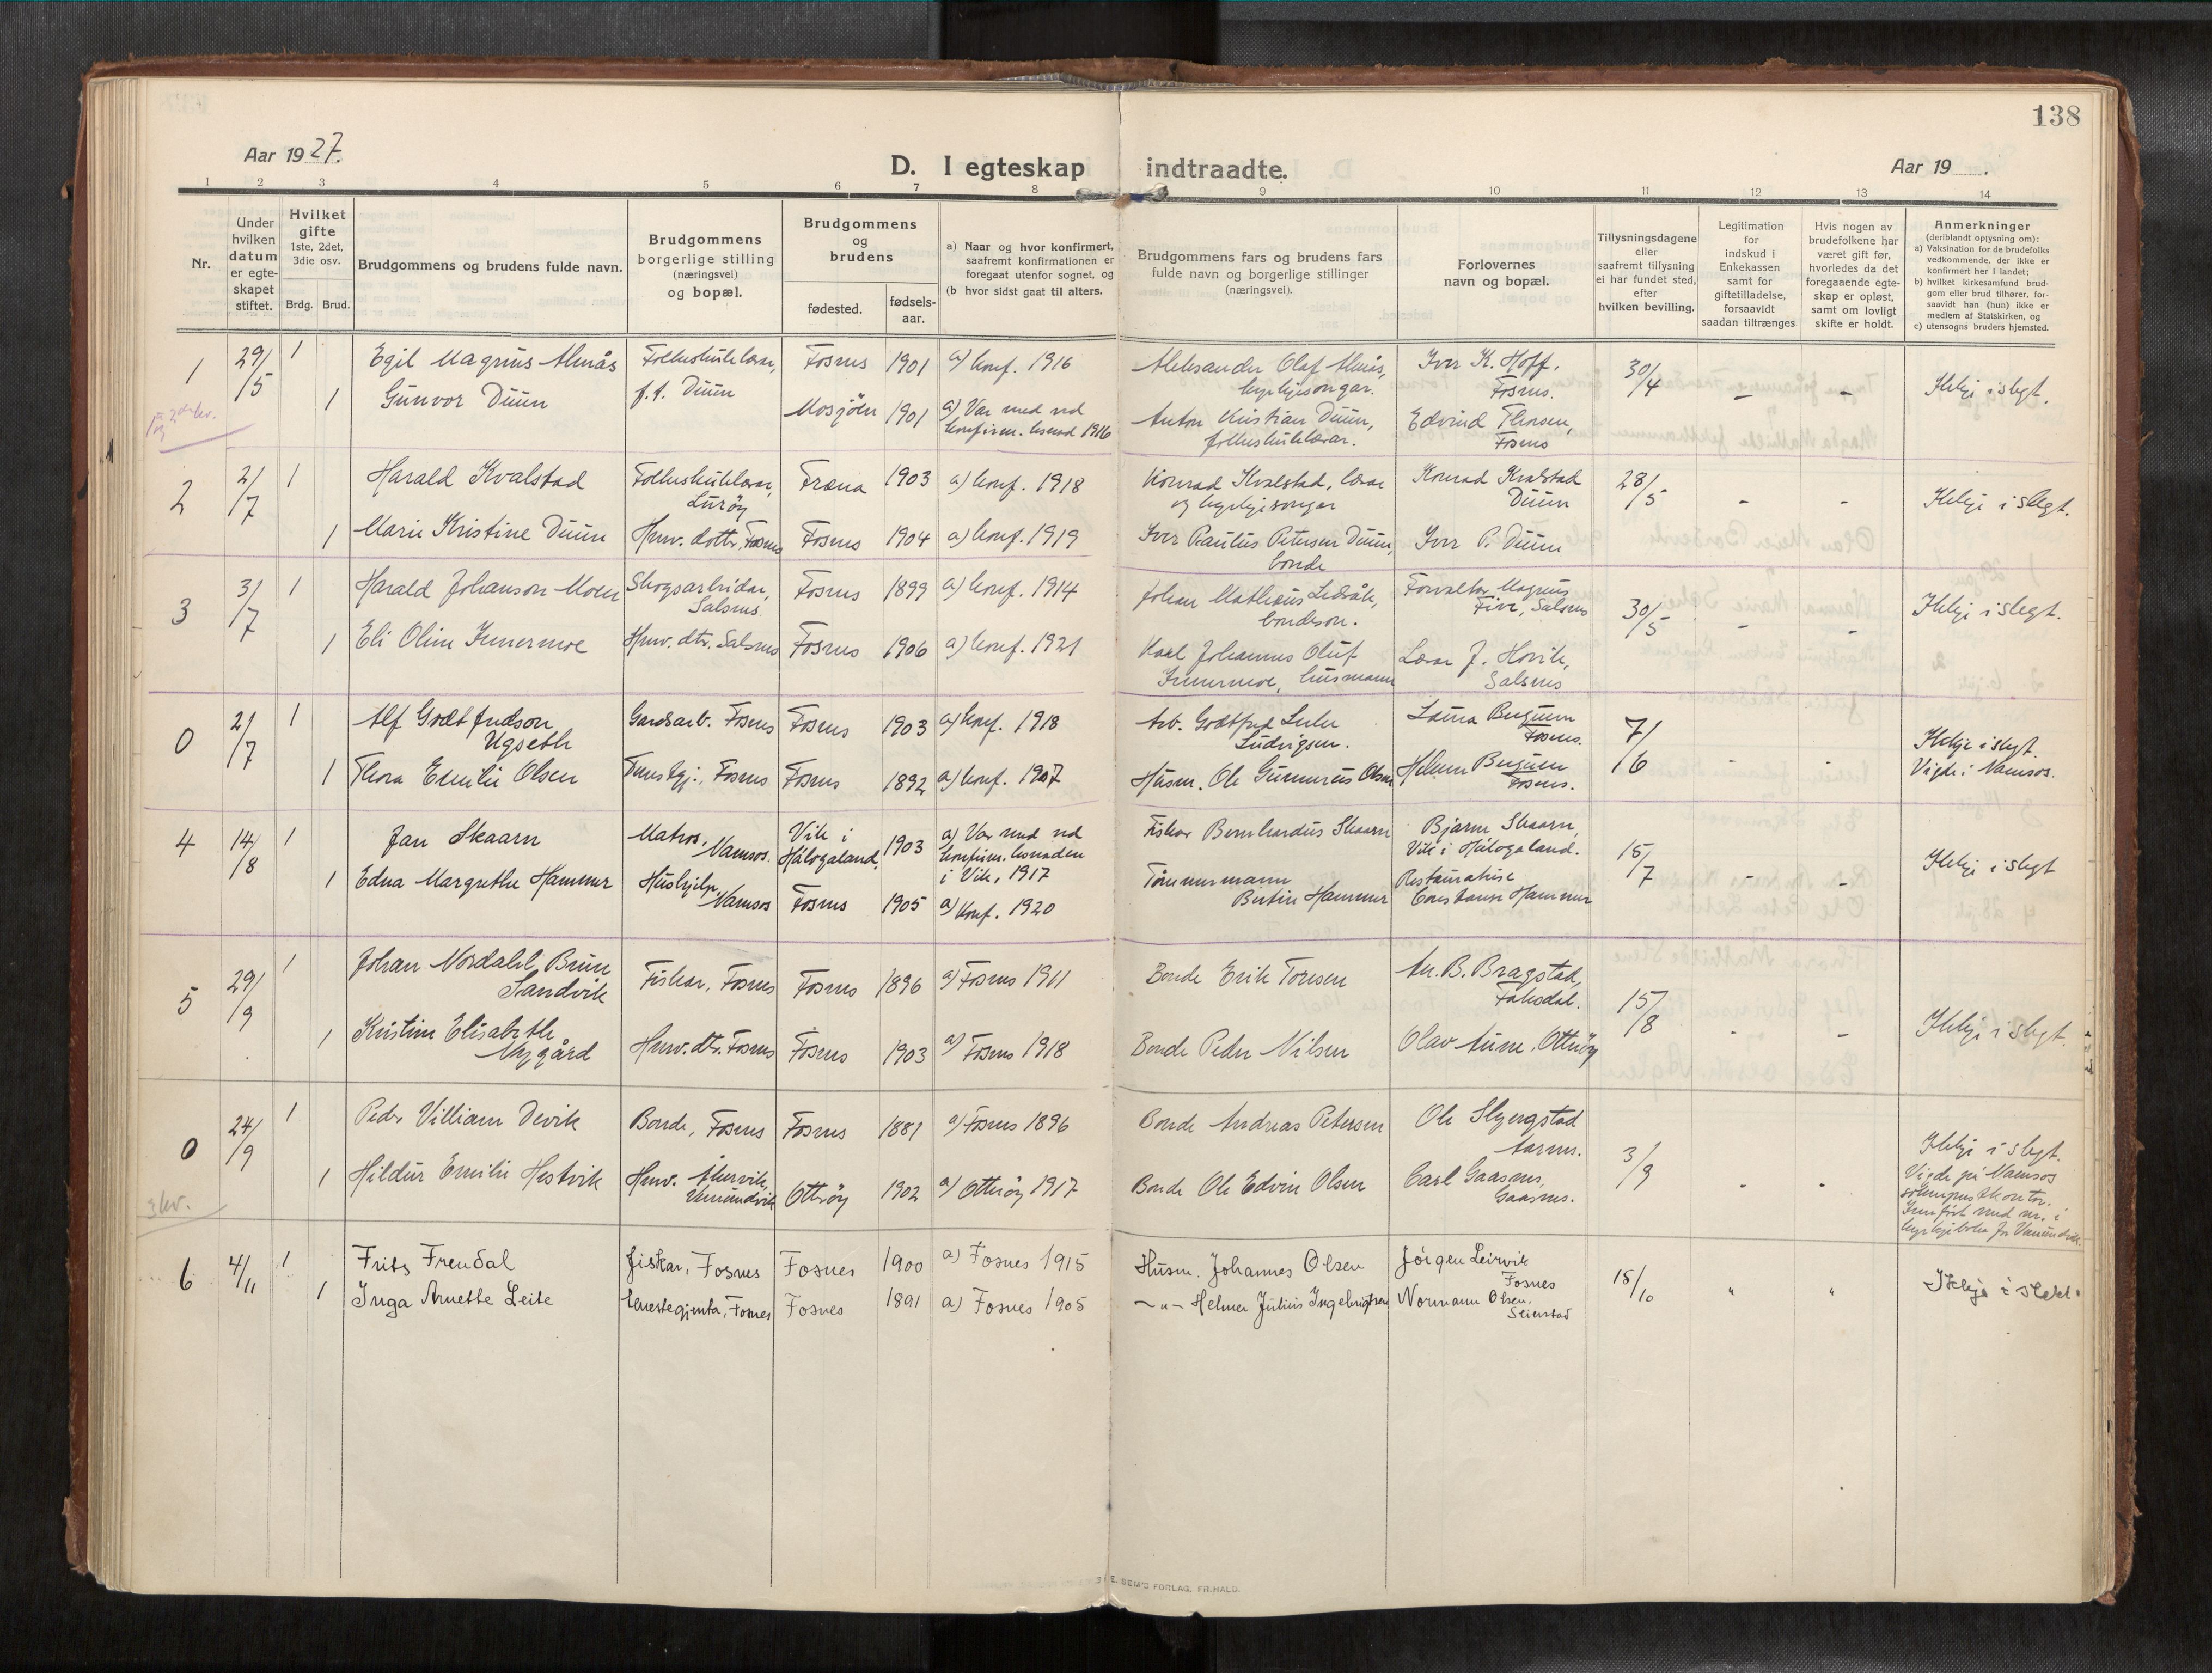 138
Aar 1927.
D. I egteskap indtraadte.
Aar 19 .
1 2 3 4 5 6 7 8 9 10 11 12 13 14
Nr.
Under hvilken datum er egte-skapet stiftet.
Hvilket gifte 1ste, 2det, 3die osv.
Brdg. Brud.
Brudgommens og brudens fulde navn.
Brudgommens borgerlige stilling (næringsvei) og bopæl.
Brudgommens og brudens
fødested. fødsels-aar.
a) Naar og hvor konfirmert, saafremt konfirmationen er foregaat utenfor sognet, og
(b hvor sidst gaat til alters.
Brudgommens fars og brudens fars fulde navn og borgerlige stillinger (næringsvei).
Forlovernes navn og bopæl.
Tillysningsdagene eller saafremt tillysning ei har fundet sted, efter hvilken bevilling.
Legitimation for indskud i Enkekassen samt for giftetilladelse, forsaavidt saadan tiltrænges.
Hvis nogen av brudefolkene har været gift før, hvorledes da det foregaaende egte-skap er opløst, samt om lovligt skifte er holdt.
Anmerkninger
(deriblandt opysning om):
a) Vaksination for de brudefolks vedkommende, der ikke er konfirmert her i landet;
b) hvilket kirkesamfund brud-gom eller brud tilhører, for-saavidt han (hun) ikke er medlem af Statskirken, og
c) utensogns bruders hjemsted.
1 29/5 1 Egil Magnus Almås Folkeskulelærar, Fosnes 1901 a) konf. 1916 Aleksander Olaf Almås, kyrkjesongar. Iver K. Hoff, Fosnes. 30/4 – – Ikkje i slegt.
1 Gunvor Duun f.t. Duun Mosjöen 1901 a) Var med ved konfirm. 1916 Anton Kristian Duun, folkeskulelærar. Edvind Thorsen, Fosnes
2 2/7 1 Harald Kvalstad Folkeskulelærar, Luröy Fræna 1903 a) konf. 1918 Konrad Kvalstad, lærar og kyrkjesongar Konrad Kvalstad Duun 28/5 - - Ikkje i slegt.
1 Marie Kristine Duun Husv. dotter, Fosnes Fosnes 1904 a) konf. 1919 Iver Paulus Petersen Duun, bonde Iver P. Duun
3 3/7 1 Harald Johanson Moen Skogsarbeidar, Salsnes Fosnes 1899 a) konf. 1914 Johan Mathæus bondeson. Forvaltar Magnus Five, Salsnes 30/5 – – Ikkje i slegt.
1 Eli Oline Innermoe Husv. dtr. Salsnes Fosnes 1906 a) konf. 1921 Karl Johannes Oluf Innermoe, husmann Lærar J. Hovik, Salsnes
0 2/7 1 Alf Godtfredson Ugseth Gardsarb. Fosnes Fosnes 1903 a) konf. 1918 Arb. Godtfred Ludvigsen. Laura Fosnes. 7/6 - - Ikkje i slegt. Vigde i Namsos.
1 Thora Emilie Olsen Tenestgj., Fosnes Fosnes 1892 a) konf. 1907 Husm. Ole Gunnerius Olsen Fosnes.
4 14/8 1 Jan Skaarn Matros, Namsos. Vik i Hålogaland 1903 a) Var med ved konfirm. i Vik, 1917 Fiskar Bernhardus Skaarn Bjarne Skaarn, Vik i Hålogaland. 15/7 - – Ikkje i slegt
1 Edna Margrethe Hammer Hushjelp, Namsos Fosnes 1905 a) konf. 1920 Tömmermann Bertin Hammer Constanse Hammer
5 29/9 1 Johan Nordahl Brun Sandvik Fiskar, Fosnes Fosnes 1896 a) Fosnes 1911 Bonde Erik Toresen An. B. Bragstad, 15/8 - – Ikkje i slegt.
1 Kristine Elisabeth Nygård Husv. dtr. Fosnes Fosnes 1903 a) Fosnes 1918 Bonde Peder Nilsen Olav Aune, Otteröy
0 24/9 1 Peder Villiam Devik Bonde, Fosnes Fosnes 1881 a) Fosnes 1896 Bonde Andreas Petersen Ole 3/9 - - Ikkje i slegt. Vigde på Namsos
1 Hildur Emilie Hestvik Husv. Vemundvik Otteröy 1902 a) Otteröy 1917 Bonde Ole Edvin Olsen Carl Gaasnes, Gaasnes. Innfört med nr. i kyrkjeboka for Vemundvik.
6 4/11 1 Frits Frendal fiskar, Fosnes Fosnes 1900 a) Fosnes 1915 Husm. Johannes Olsen Jörgen Leirvik Fosnes 18/10 " " Ikkje i slekt.
1 Inga Anette Leite tenestegjenta, Fosnes Fosnes 1891 a) Fosnes 1905 –"– Helmer Julius Ingebrigtsen Normann Olsen, Seierstad
E. SEM'S FORLAG. FR.HALD.